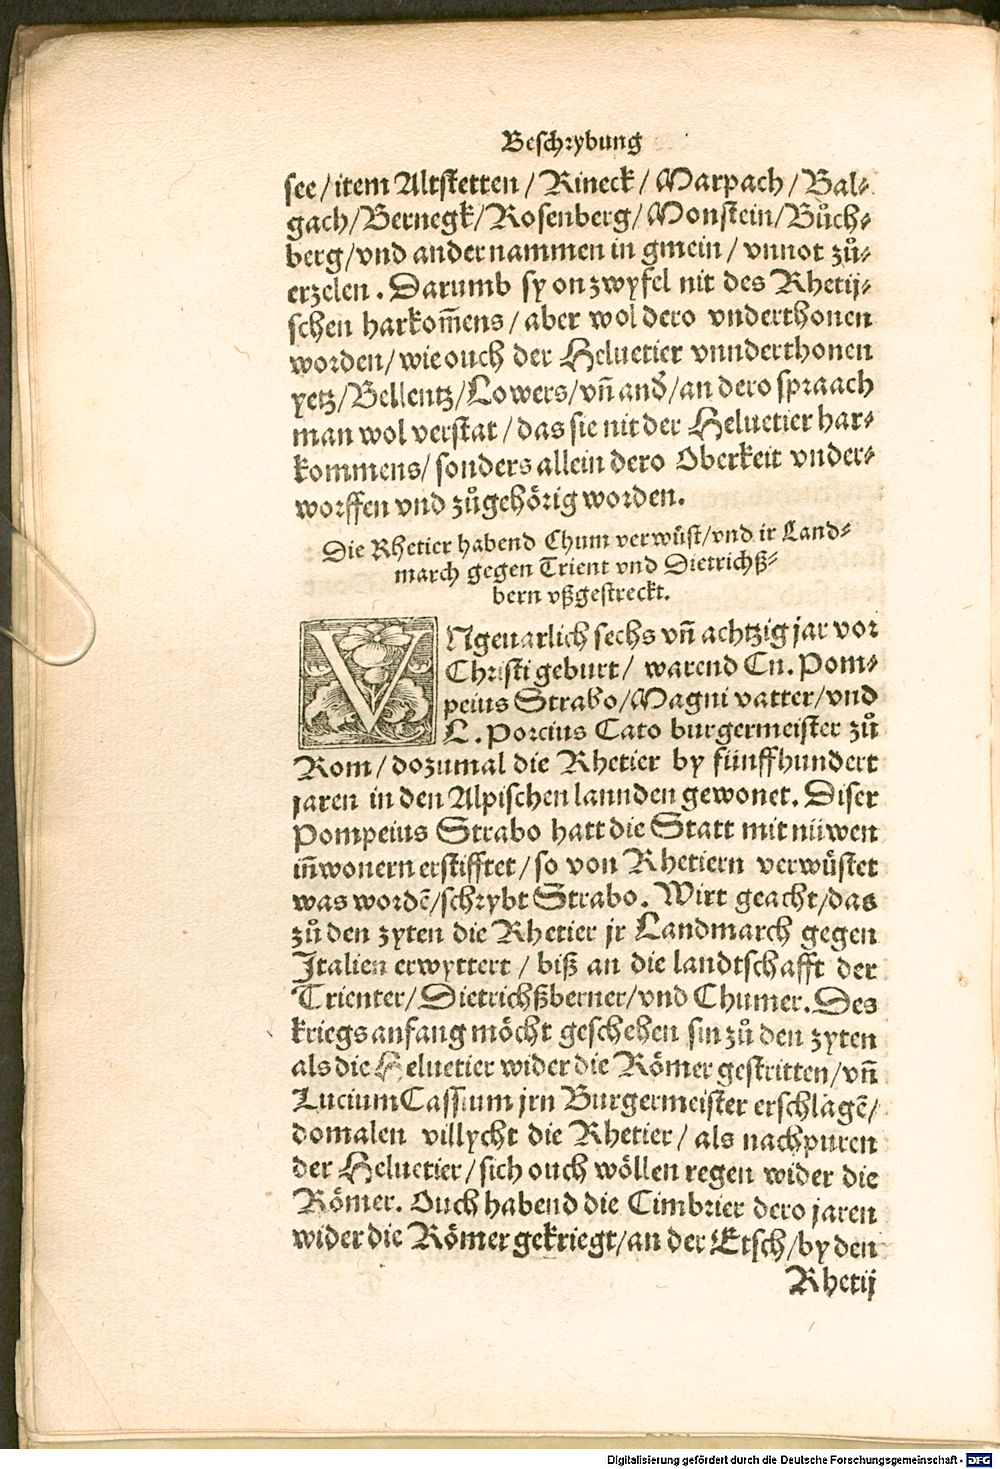 Beschrybung
see/item Altstetten/Rineck/Marpach/Bal⸗
gach/Bernegk/Rosenberg/Monstein/Bůch⸗
berg/vnd ander nammen in gmein/vnnot zů⸗
erzelen. Darumb sy on zwyfel nit des Rhetij⸗
schen harkom̄ens/aber wol dero vnderthonen
worden/wie ouch der Heluetier vnnderthonen
yetz/Bellentz/Lowers/vn̄ and̕/an dero spraach
man wol verstat/das sie nit der Heluetier har⸗
kommens/sonders allein dero Oberkeit vnder⸗
worffen vnd zůgehörig worden.
Die Rhetier habend Chum verwüst/vnd ir Land⸗
march gegen Trient vnd Dietrichß⸗
bern vßgestreckt.
VNgeuarlich sechs vn̄ achtzig jar vor
Christi geburt/ warend Cn. Pom⸗
peius Strabo/Magni vatter/vnd
L. Porcius Cato burgermeister zů
Rom/dozumal die Rhetier by fünffhundert
jaren in den Alpischen lannden gewonet. Diser
Pompeius Strabo hatt die Statt mit nüwen
in̄wonern erstifftet/so von Rhetiern verwüstet
was wordē/schrybt Strabo. Wirt geacht/das
zů den zyten die Rhetier jr Landmarch gegen
Italien erwyttert/biß an die landtschafft der
Trienter/Dietrichßberner/vnd Chumer. Des
kriegs anfang möcht geschehen sin zů den zyten
als die Heluetier wider die Römer gestritten/vn̄
Lucium Cassium jrn Burgermeister erschlagē/
domalen villycht die Rhetier/als nachpuren
der Heluetier/sich ouch wöllen regen wider die
Römer. Ouch habend die Cimbrier dero jaren
wider die Römer gekriegt/an der Etsch/by den
Rhetij
Digitalisierung gefördert durch die Deutsche Forschungsgemeinschaft - DFG